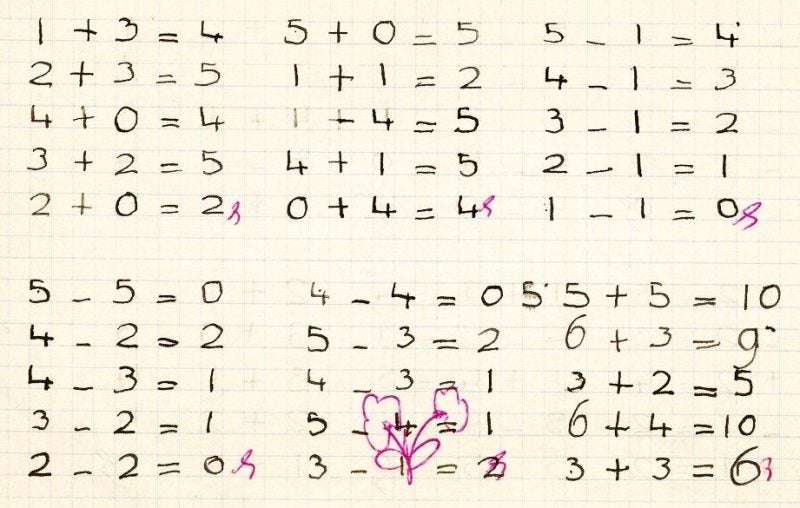 1 + 3 = 4   5 + 0 = 5   5 - 1 = 4
2 + 3 = 5   1 + 1 = 2   4 - 1 = 3
4 + 0 = 4   1 + 4 = 5   3 - 1 = 2
3 + 2 = 5   4 + 1 = 5   2 - 1 = 1
2 + 0 = 2   0 + 4 = 4   1 - 1 = 0
5 - 5 = 0   4 - 4 = 0   5 5 + 5 = 10
4 - 2 = 2   5 - 3 = 2   6 + 3 = 9
4 - 3 = 1   4 - 3 = 1   3 + 2 = 5
3 - 2 = 1   5 - 4 = 1   6 + 4 = 10
2 - 2 = 0   3 - 1 = 2   3 + 3 = 6